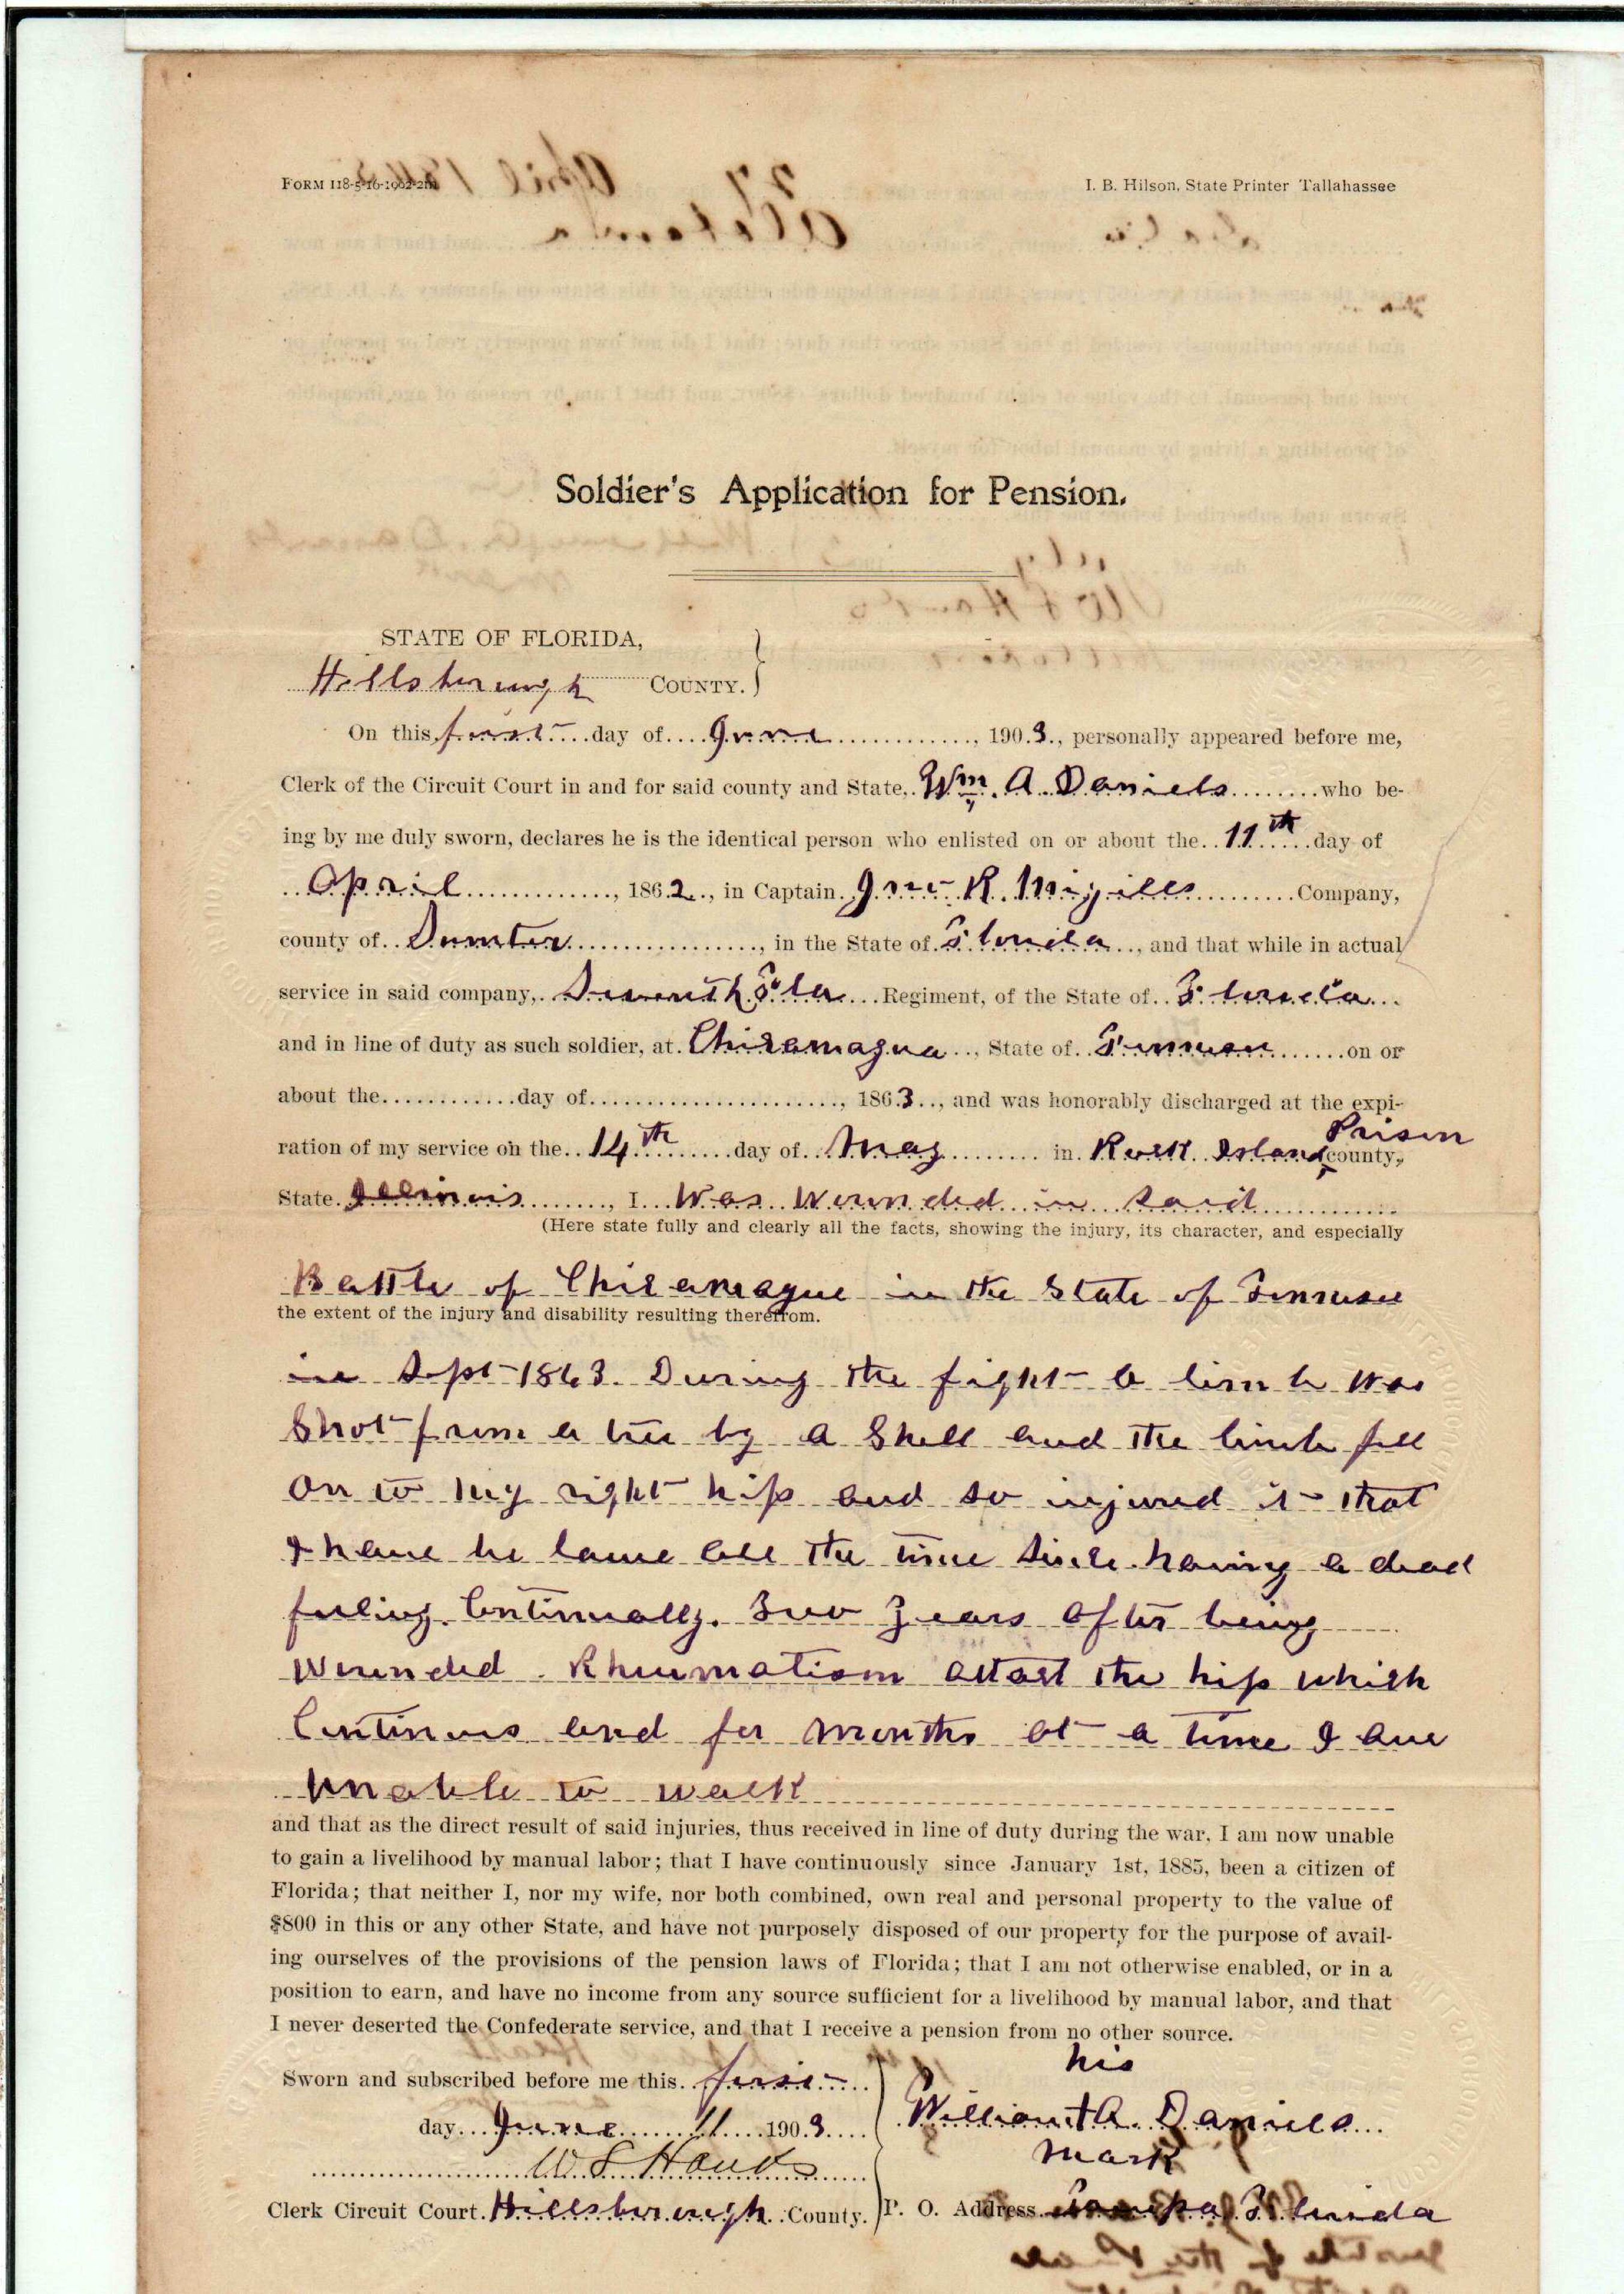 FORM 118-5-16-1902-2m
I. B. Hilson, State Printer Tallahassee
Soldier's Application for Pension.
STATE OF FLORIDA,
Hillsborough COUNTY.
On this first day of June, 1903, personally appeared before me,
Clerk of the Circuit Court in and for said county and State, Wm. A. Daniels who be-
ing by me duly sworn, declares he is the identical person who enlisted on or about the 11th day of
April, 1862, in Captain Jno. R. Company,
county of Sumter, in the State of Florida, and that while in actual
service in said company, Seventh Fla Regiment, of the State of Florida
and in line of duty as such soldier, at Chicamagua, State of on or
about the day of , 1863, and was honorably discharged at the expi-
ration of my service on the 14th day of May in Rock Island Prison county,
State Illinois, I Was Wounded in said
(Here state fully and clearly all the facts, showing the injury, its character, and especially
Battle of Chicamague in the State of
the extent of the injury and disability resulting therefrom.
in Sept 1863. During the fight a limb was
Shot from a tree by a Shell and the limb fell
on to my right hip and so injured it that
I have be lame all the time since having a dead
feeling Continually. Two years after being
Wounded. Rheumatism attact the hip which
Continues and for months at a time I am
unable to walk
and that as the direct result of said injuries, thus received in line of duty during the war, I am now unable
to gain a livelihood by manual labor; that I have continuously since January 1st, 1885, been a citizen of
Florida; that neither I, nor my wife, nor both combined, own real and personal property to the value of
$800 in this or any other State, and have not purposely disposed of our property for the purpose of avail-
ing ourselves of the provisions of the pension laws of Florida; that I am not otherwise enabled, or in a
position to earn, and have no income from any source sufficient for a livelihood by manual labor, and that
I never deserted the Confederate service, and that I receive a pension from no other source.
his
Sworn and subscribed before me this first
William + A. Daniels
day June 11 1903
mark
Clerk Circuit Court Hillsborough County.
P. O. Address Tampa Florida